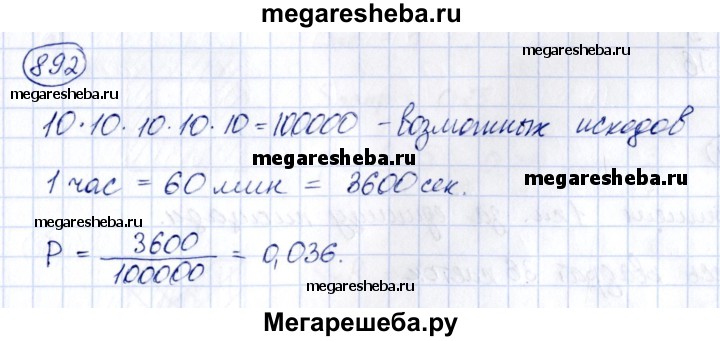 megaresheba.ru
892
megaresheba.ru
megaresheba.ru
megaresheba.ru
10·10·10·10·10=100000 – возможных исходов
megaresheba.ru
1 час = 60 мин = 3600 сек.
megaresheba.ru
megaresheba.ru
P = 3600
100000 = 0,036.
megaresheba.ru
megaresheba.ru
Мегарешеба.ру